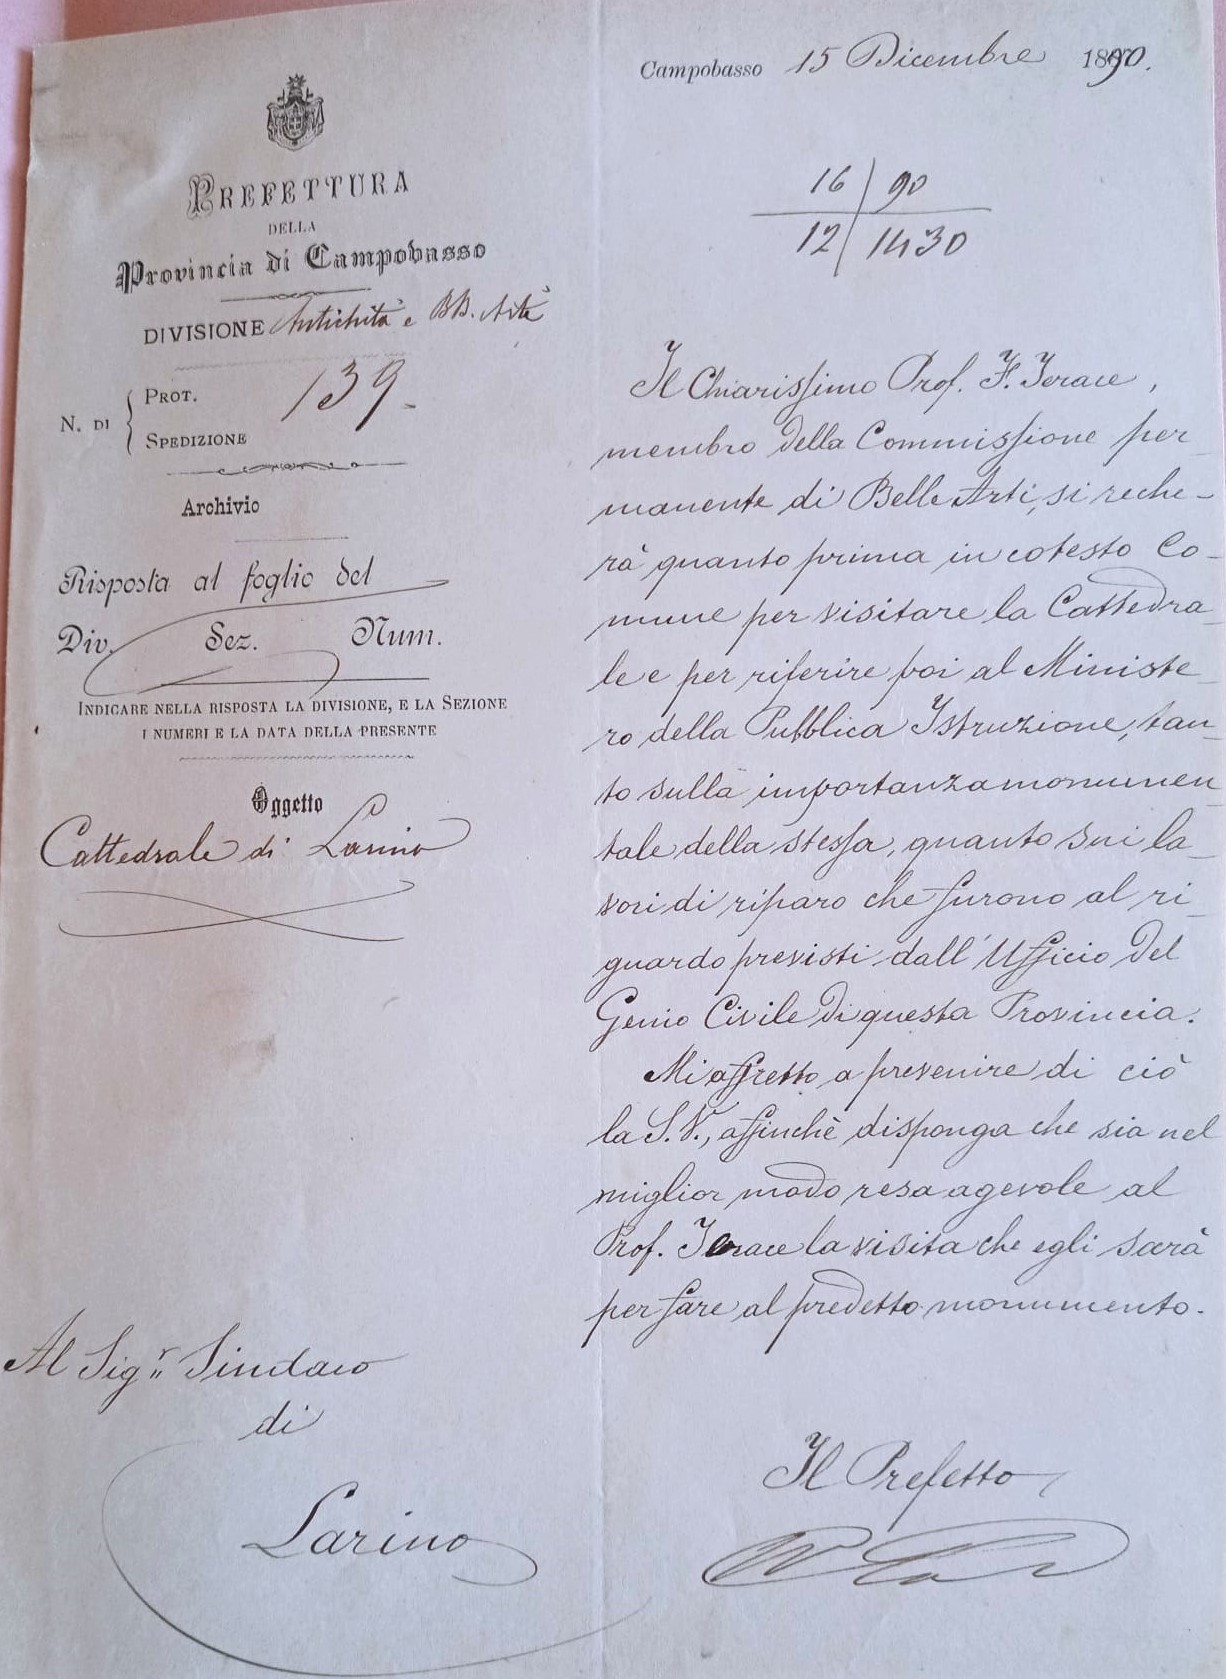 PREFETTURA
DELLA
Provincia di Campobasso
DIVISIONE Antichità e BB. Arti
N. DI
PROT. 139
SPEDIZIONE
Archivio
Risposta al foglio del
Div. Sez. Num.
INDICARE NELLA RISPOSTA LA DIVISIONE, E LA SEZIONE
I NUMERI E LA DATA DELLA PRESENTE
Oggetto
Cattedrale di Larino
Al Sigr. Sindaco
di
Larino
Campobasso 15 Dicembre 1890.
16 | 90
12 | 1430
Il Chiarissimo Prof. F. Jerace,
membro della Commissione per-
manente di Belle Arti, si reche-
rà quanto prima in cotesto Co-
mune per visitare la Cattedra-
le e per riferire poi al Ministe-
ro della Pubblica Istruzione, tan-
to sulla importanza monumen-
tale della stessa, quanto sui la-
vori di riparo che furono al ri-
guardo previsti dall'Ufficio del
Genio Civile di questa Provincia.
Mi affretto a prevenire di ciò
la S.V., affinchè disponga che sia nel
miglior modo resa agevole al
Prof. Jerace la visita che egli sarà
per fare al predetto monumento.
Il Prefetto